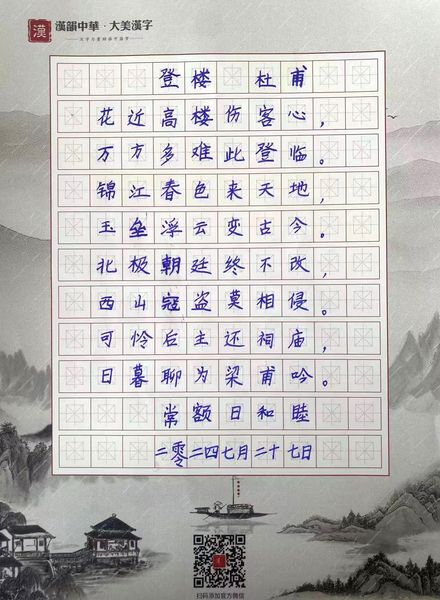 漢
漢韻中華·大美漢字
登楼 杜甫
花近高楼伤客心，
万方多难此登临。
锦江春色来天地，
玉垒浮云变古今。
北极朝廷终不改，
西山寇盗莫相侵。
可怜后主还祠庙，
日暮聊为梁甫吟。
常额日和睦
二零二四七月二十七日
扫码添加官方微信